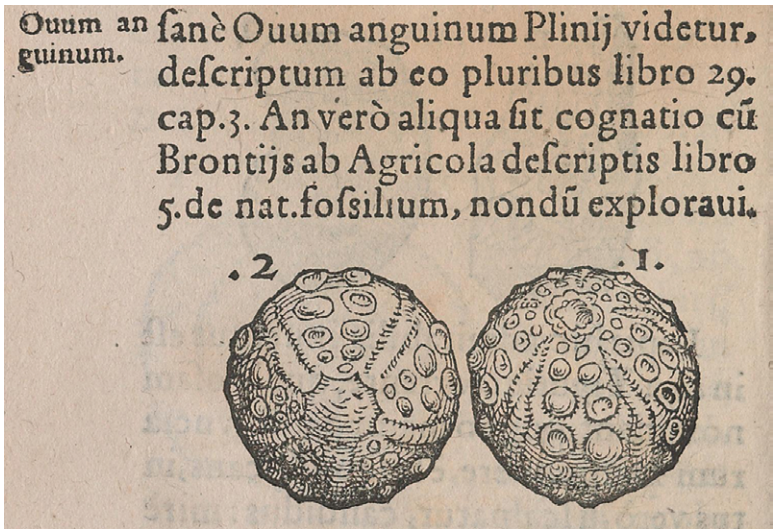 Ouum an
guinum.
ſanè Ouum anguinum Plinij videtur,
deſcriptum ab eo pluribus libro 29.
cap.3. An verò aliqua ſit cognatio cū
Brontijs ab Agricola deſcriptis libro
5.de nat.foſsilium, nondū exploraui.
.2 .1.